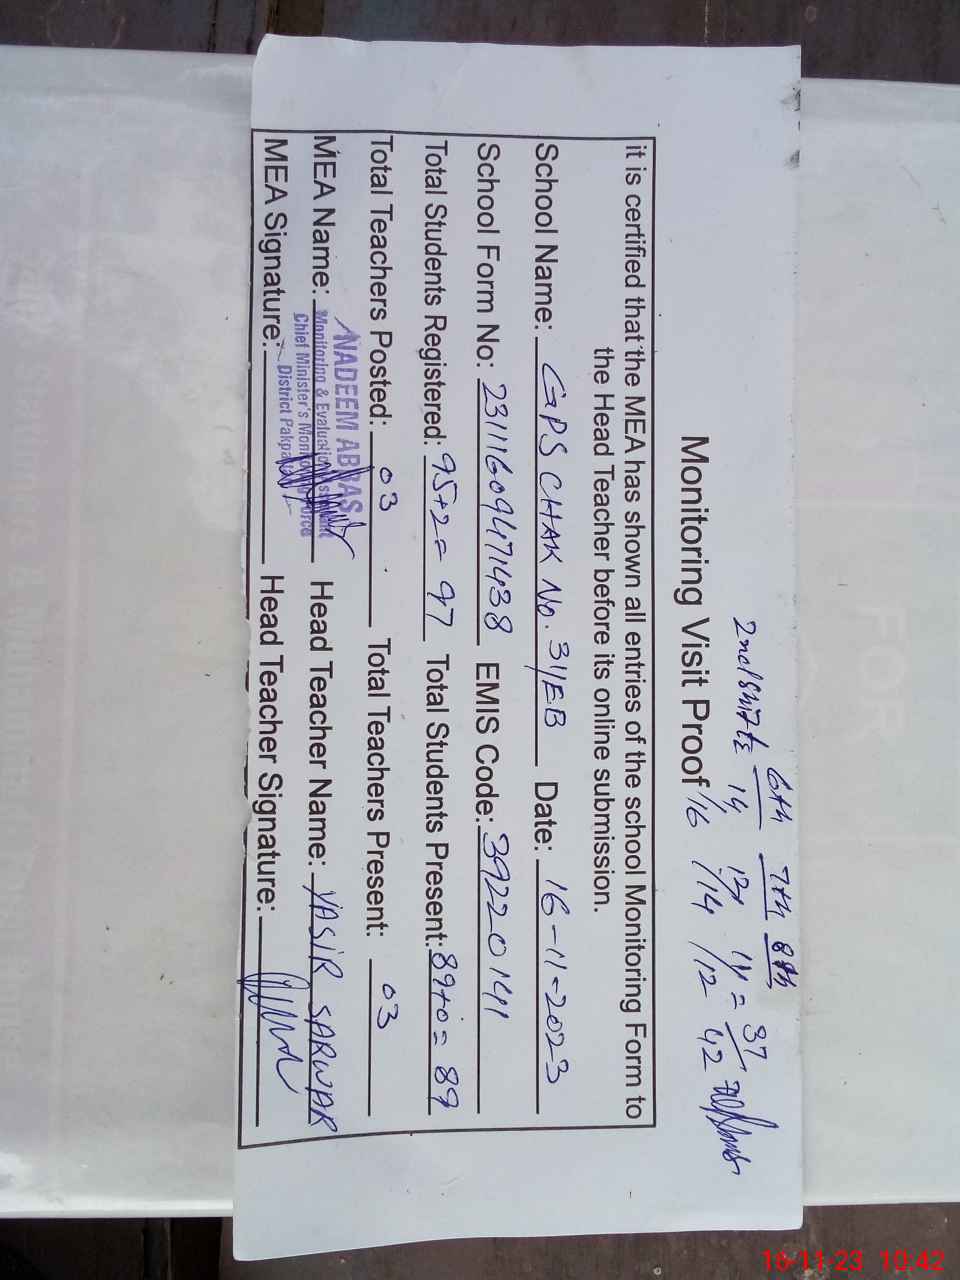 6th 7th 8th
2nd shift = 14/16 12/14 11/12 = 37/42
Monitoring Visit Proof
it is certified that the MEA has shown all entries of the school Monitoring Form to
the Head Teacher before its online submission.
School Name: GPS CHAK No. 31/EB Date: 16-11-2023
School Form No: 23111609471438 EMIS Code: 39220141
Total Students Registered: 95+2= 97 Total Students Present: 89+0= 89
Total Teachers Posted: 03 Total Teachers Present: 03
MEA Name: NADEEM ABBAS Head Teacher Name: YASIR SARWAR
Monitoring & Evaluation Assistant
Chief Minister's Monitoring Force
District Pakpattan
MEA Signature: Head Teacher Signature:
FOR
16-11-23 10:42